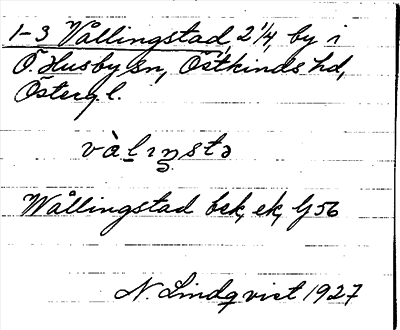 1-3 Vållingstad, 2 1/4, by i
Ö. Husby sn, Östkinds hd,
Österg. l.
và̀lıŋstə
Wållingstad bsk, ek, Lj 56
N. Lindqvist 1927